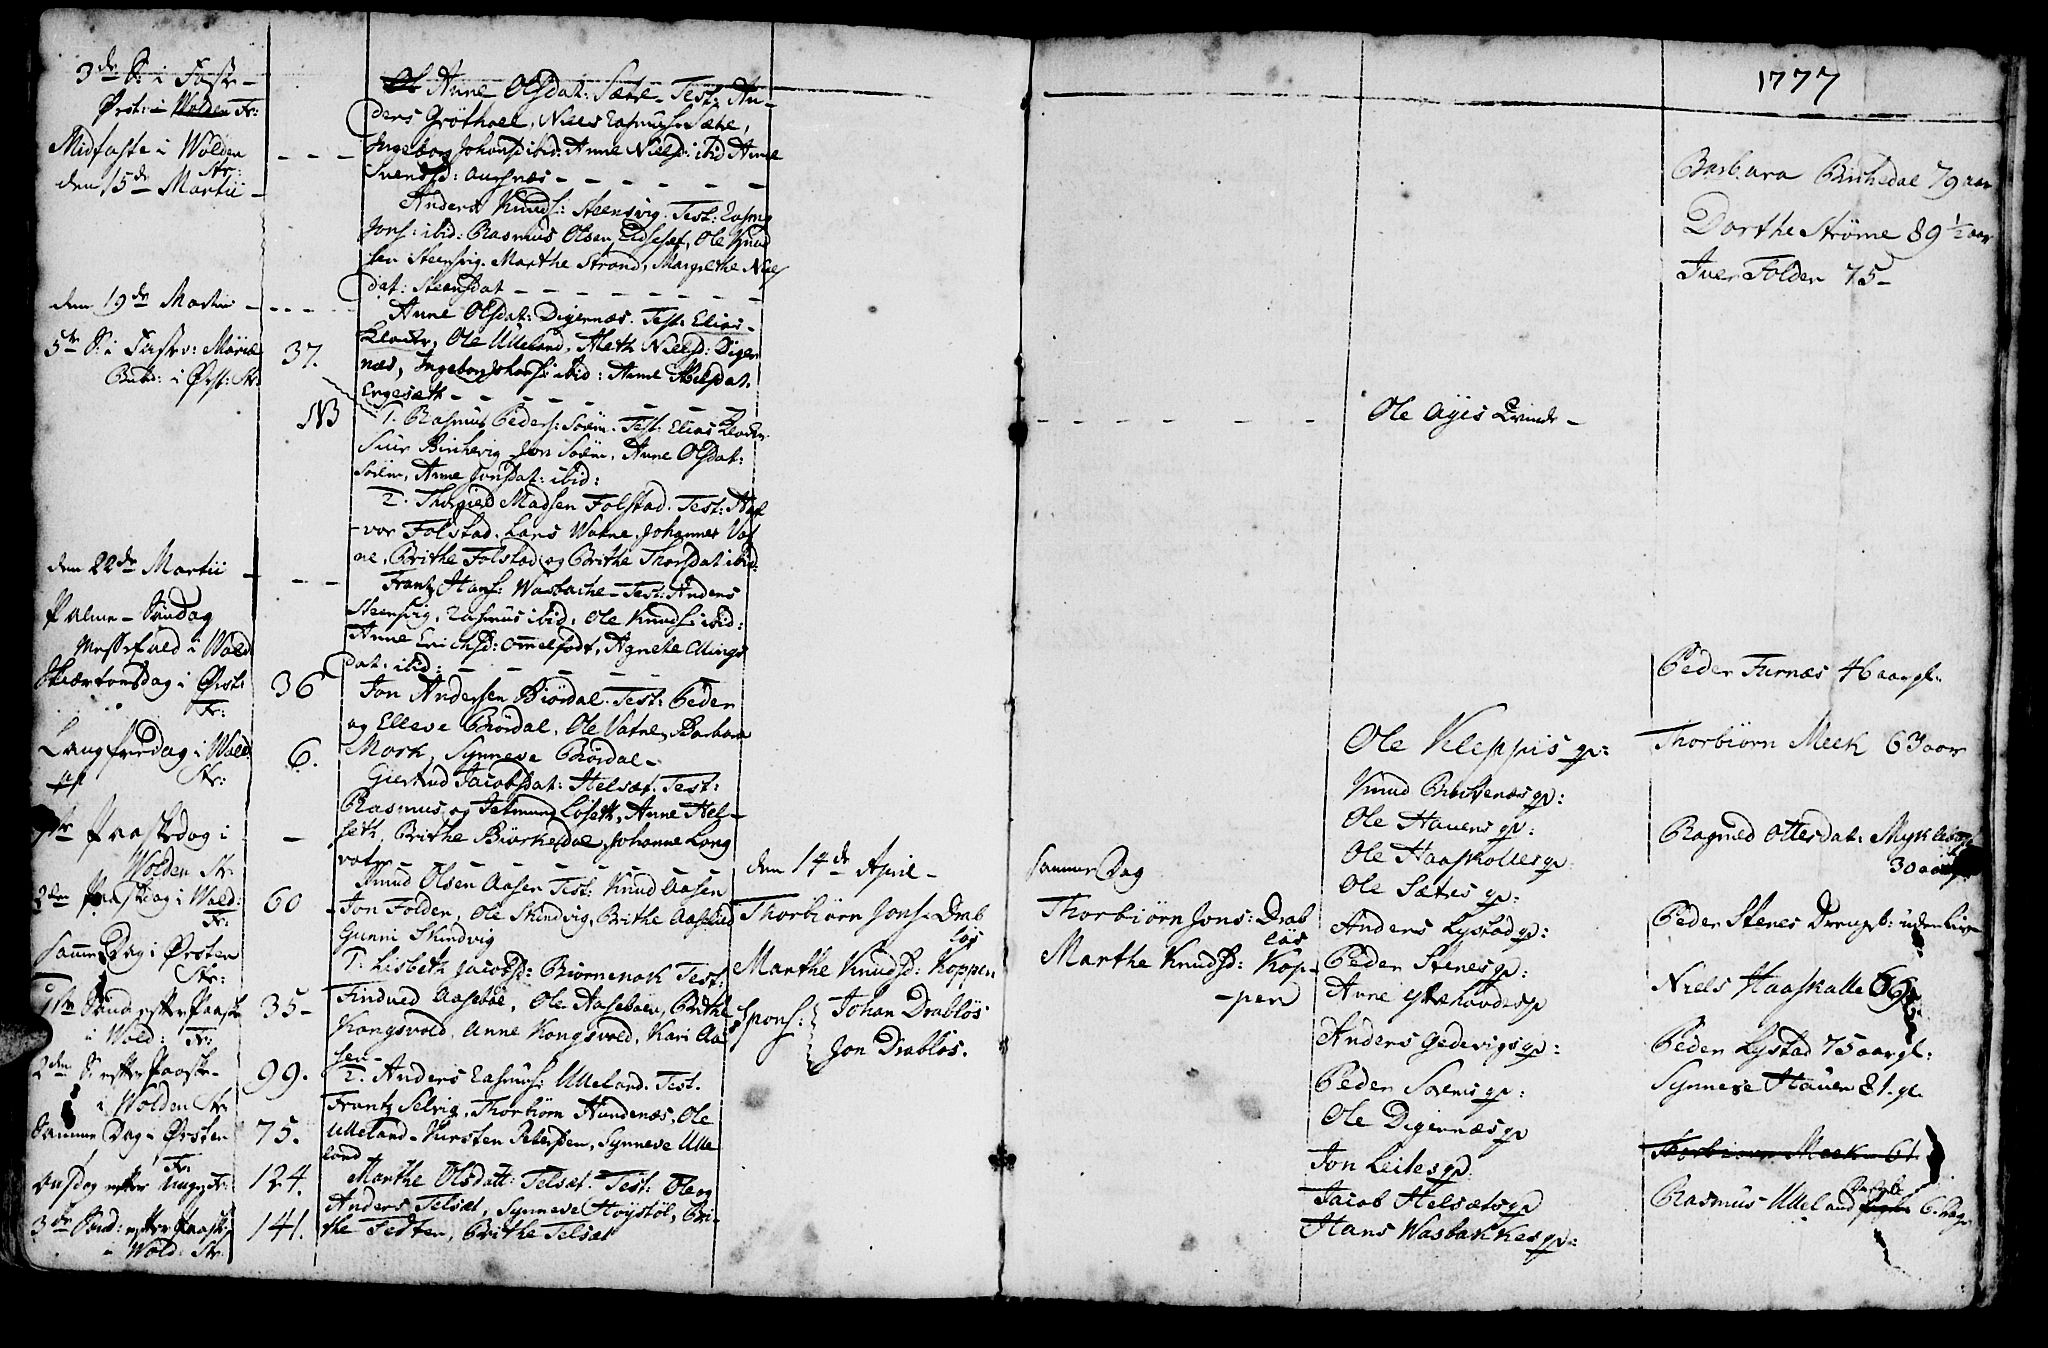 1777
3de S: i Faste –
Ørst: i Wolden Fr:
Midfaste i Wolden
Str:
den 15de Martii –
den 19de Martii –
5te S: i Fast: Mariæ
Bub: i Ørst: Str:
den 22de Martii –
Palme – Søndag
Messefald i Wold
Skiærtorsdag i Ørst:
Fr:
Langfredag i Wold:
Str:
1ste Paaskedag i
Wolden Str:
2den Paaskedag i Wold:
Fr:
samme Dag i Ørsten
Str:
1ste Sønd: efter Paaske
i Wold: Fr:
2den S: efter Paaske –
i Wolden Str
Samme Dag i Ørsten
Fr:
Onsdag efter
3de Sønd: efter Paaske
i Wold: Str:
37.
NB
36
6.
60
35 –
99.
75.
124.
141.
Anne Olsdat: Sætre – Test: An–
ders Grøthoel, Niels Rasmus: Sætre,
Ingeborg Johans: ibid: Anne Nielsd: ibid Anne
Svendsd: Aursnæs – – –
Anders Knuds: Steensvig. Test: Rasmus
Jons: ibid: Rasmus Olsen Eidseset, Ole Knud
sen Steensvig. Marthe Strand, Margrethe Niels
dat: Steensdat – – –
Anne Olsdat: Digernæs. Test: Elias
Klocker, Ole Ulleland, Aleth Nielsd: Diger
næs, Ingeborg Johans: ibid: Anne Nielsdat.
Engesæth – – –
1. Rasmus Peders: Soëm. Test: Elias Klocker
Siur Birchevig Jon Soëm, Anne Olsdat:
Soëm, Anne Jonsdat: ibid:
2. Thorgied Madsen Folstad. Test: Hal
vor Folstad. Lars Watne. Johannes Vat
ne, Brithe Folstad og Brithe Thorsdat: ibid:
Frantz Hans: Wasbache – Test: Anders
Steensvig, Rasmus ibid: Ole Knuds: ibid:
Anne Erichsd: Ommelfodt, Agnethe Ellings
dat: ibid: – – –
Jon Andersen Biørdal. Test: Peder
og Elleve Biørdal, Ole Vatne, Barbara
Mork, Synneve Biørdal –
Giertrud Jacobsdat: Helsæt. Test:
Rasmus og Jetmund Løseth, Anne Hel–
seth, Brithe Biørkedal, Johanne Long
vatn – – –
Knud Olsen Aasen Test: Knud Aasen
Jon Folden, Ole Skindvig, Brithe Aaselid
Gunni Skindvig
1. Lisbeth Jacobsd: Biørneнak Test:
Findved Aasebøe, Ole Aasebøen, Brithe
Kongsvold, Anne Kongsvold, Kari Aa
sen –
2. Anders Rasmus: Ulleland. Test.
Frantz Selvig, Thorbiørn Hundenæs, Ole
Ulleland – Kirsten Petersen, Synneve Ulle
land
Marthe Olsdatt: Telsæt. Test: Ole og
Anders Telsæt, Synneve Høystøl, Bri–
the Sedten, Brithe Telsæt
den 14de April –
Thorbiørn Jons: Drab
løs
Marthe Knudsd: Koppen
Spons: Johan Drabløs
Jon Drabløs.
samme Dag
Thorbiørn Jons: Drab
løs
Marthe Knudsd: Kop–
–pen
Ole Ayes Qvinde –
Ole Kleppis qv:
Knud qv:
Ole Hauens qv:
Ole Haaskolles qv
Ole Sætres qv:
Anders Lystad qv:
Peder Stenes qv:
Anne qv
Anders Gedevigs qv:
Peder Sorens qv:
Ole Digernæs qv
Jon Leites qv.
Jacob Helsæts qv
Hans Wasbakkes qv:
Barbara Birkedal 79 aar
Dorthe Strøme 89 ½ aar
Iver Folden 75 –
Peder Furnæs 46 aar gl:
Thorbiørn Meek 63 aar
Ragnild Ottersdat: Myklebust
30 aar
Peder Stenes Drengb: uden
Niels Haaskolle 69
Peder Lystad 75 aar gl:
Synneve Hauen 81. gl.
Thorbiørn Meek 61
Rasmus Ulleland 6 Dage